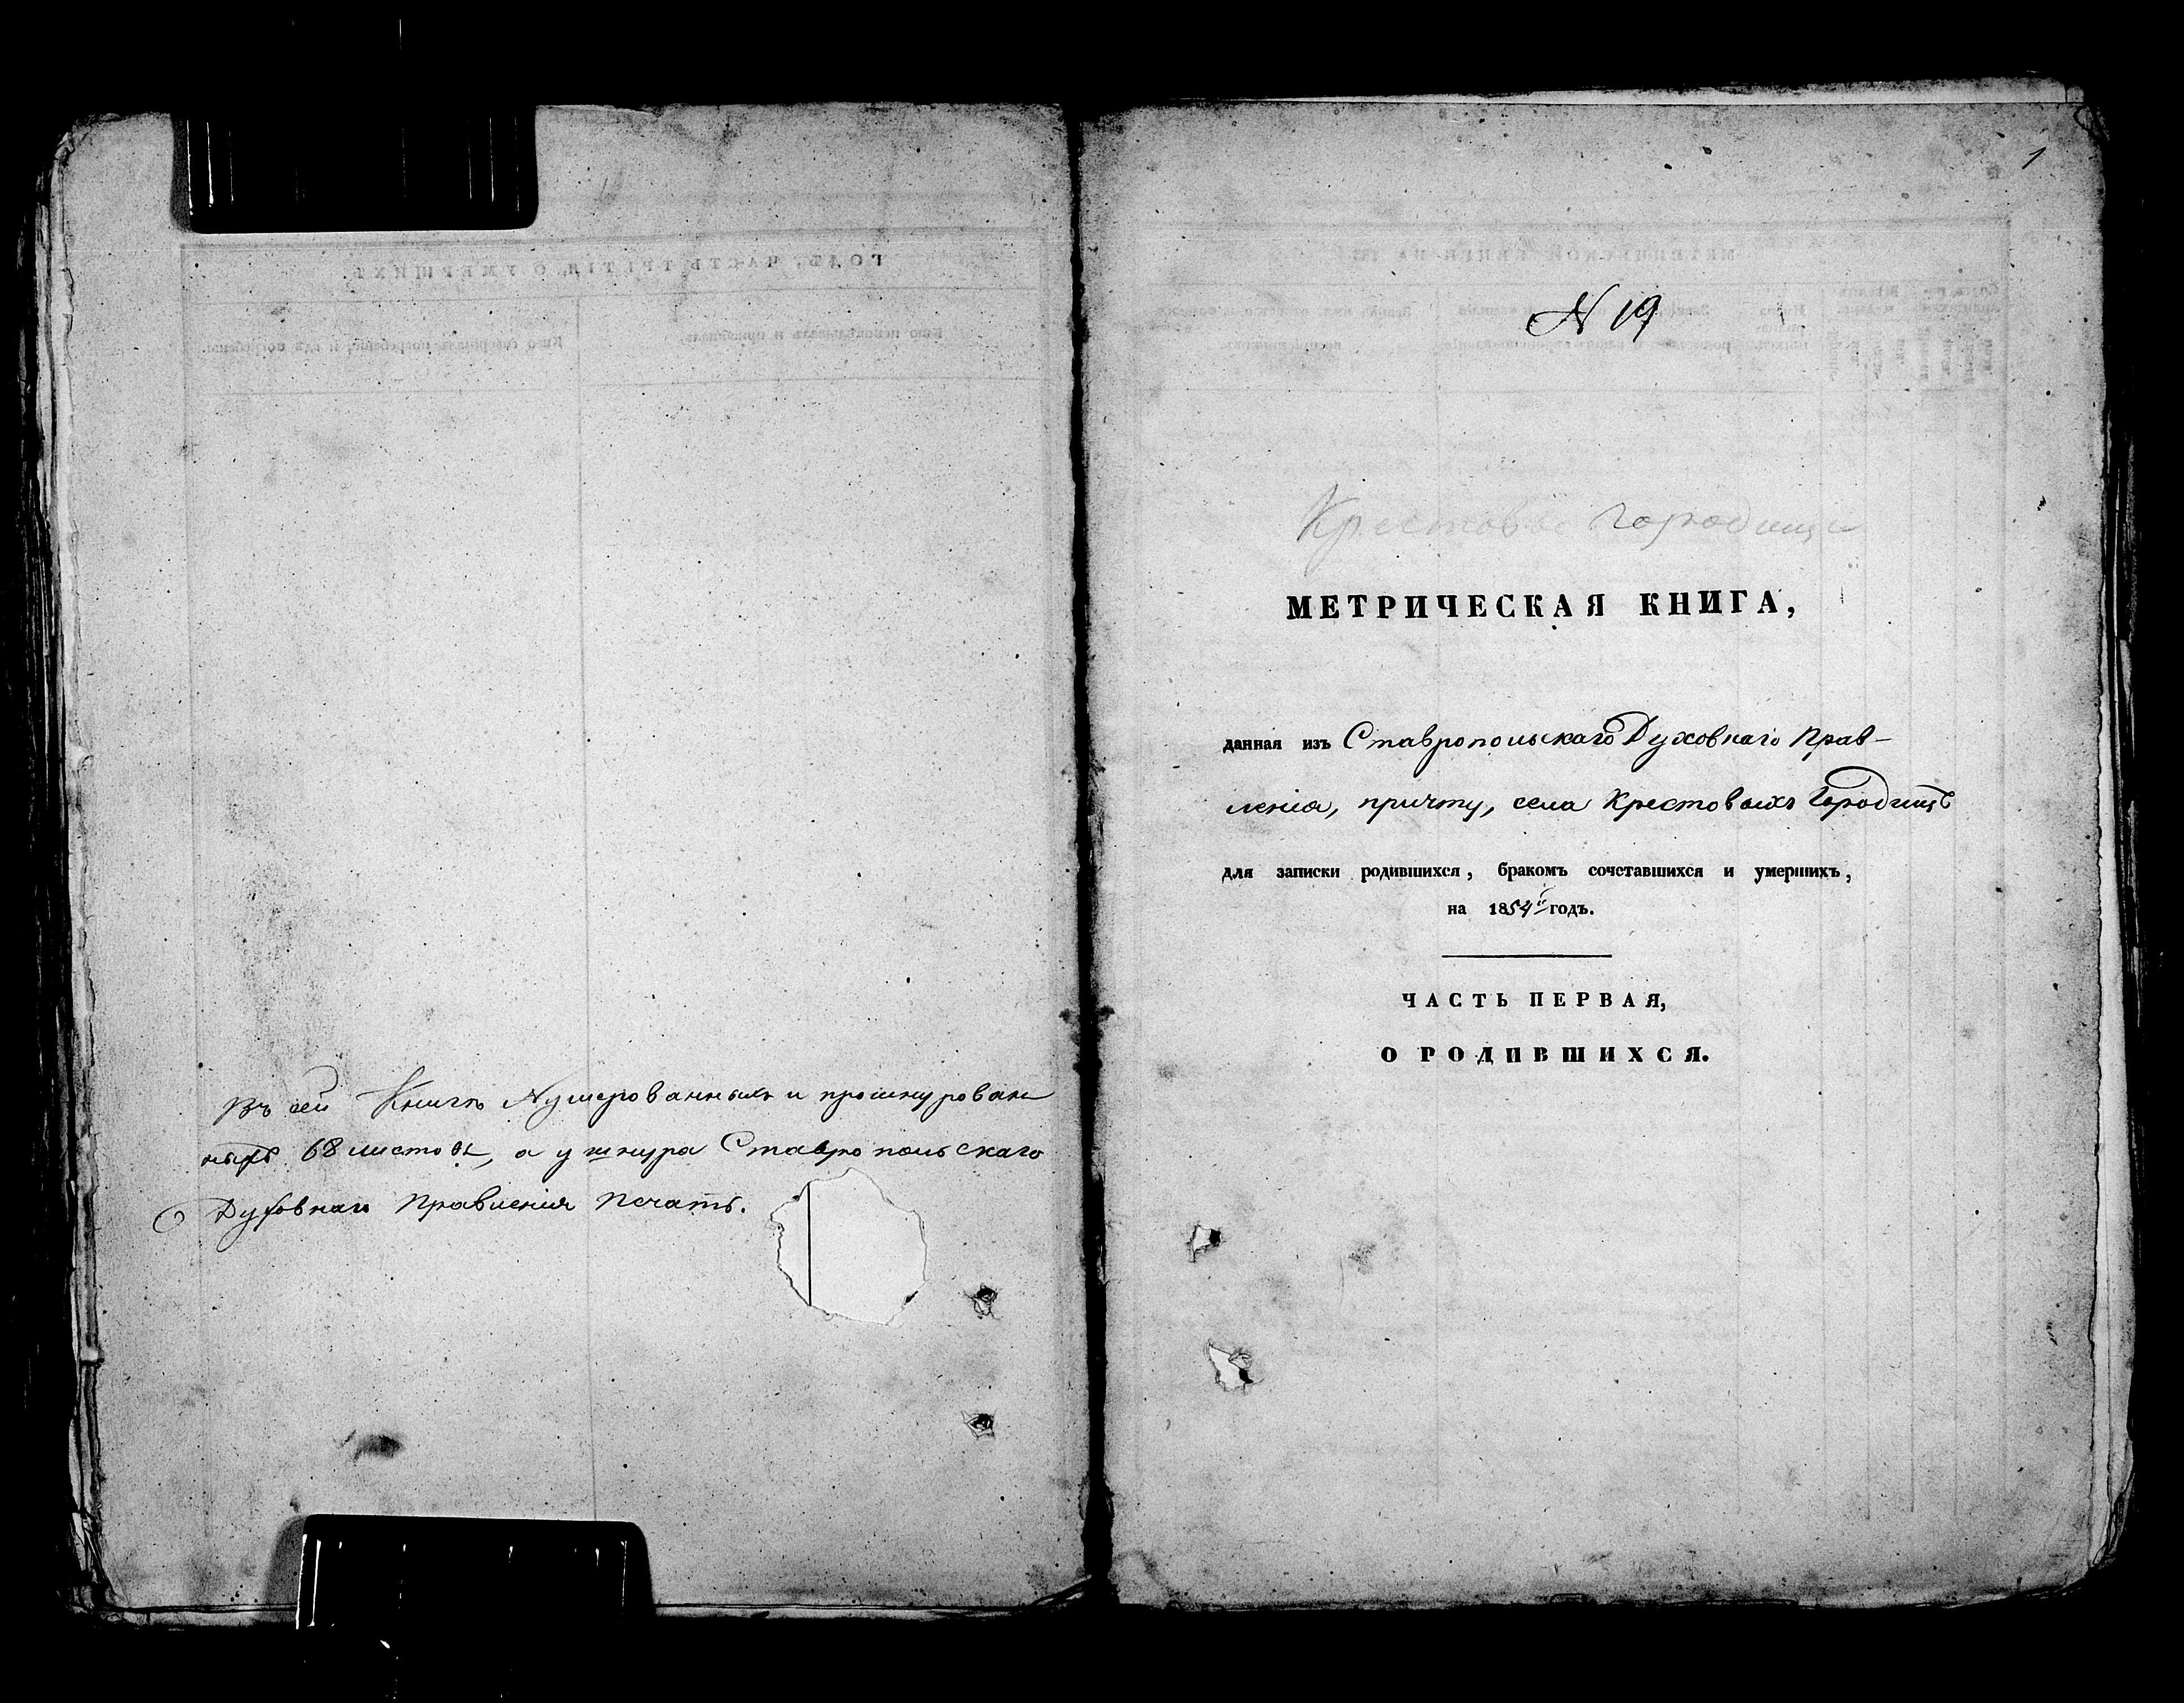 Въ сей Книгѣ Нумерованныхъ и прошнурован
ныхъ 68 листовъ, а у шнура Ставропольскаго
Духовнаго Правленія Печать.
1
N 19
Крестовое Городище
МЕТРИЧЕСКАЯ КНИГА,
данная изъ Ставропольскаго Духовнаго Прав-
ленія, причту, села Крестовыхъ Городищъ
для записки родившихся, бракомъ сочетавшихся и умершихъ,
на 1854й годъ.
ЧАСТЬ ПЕРВАЯ,
О РОДИВШИХСЯ.